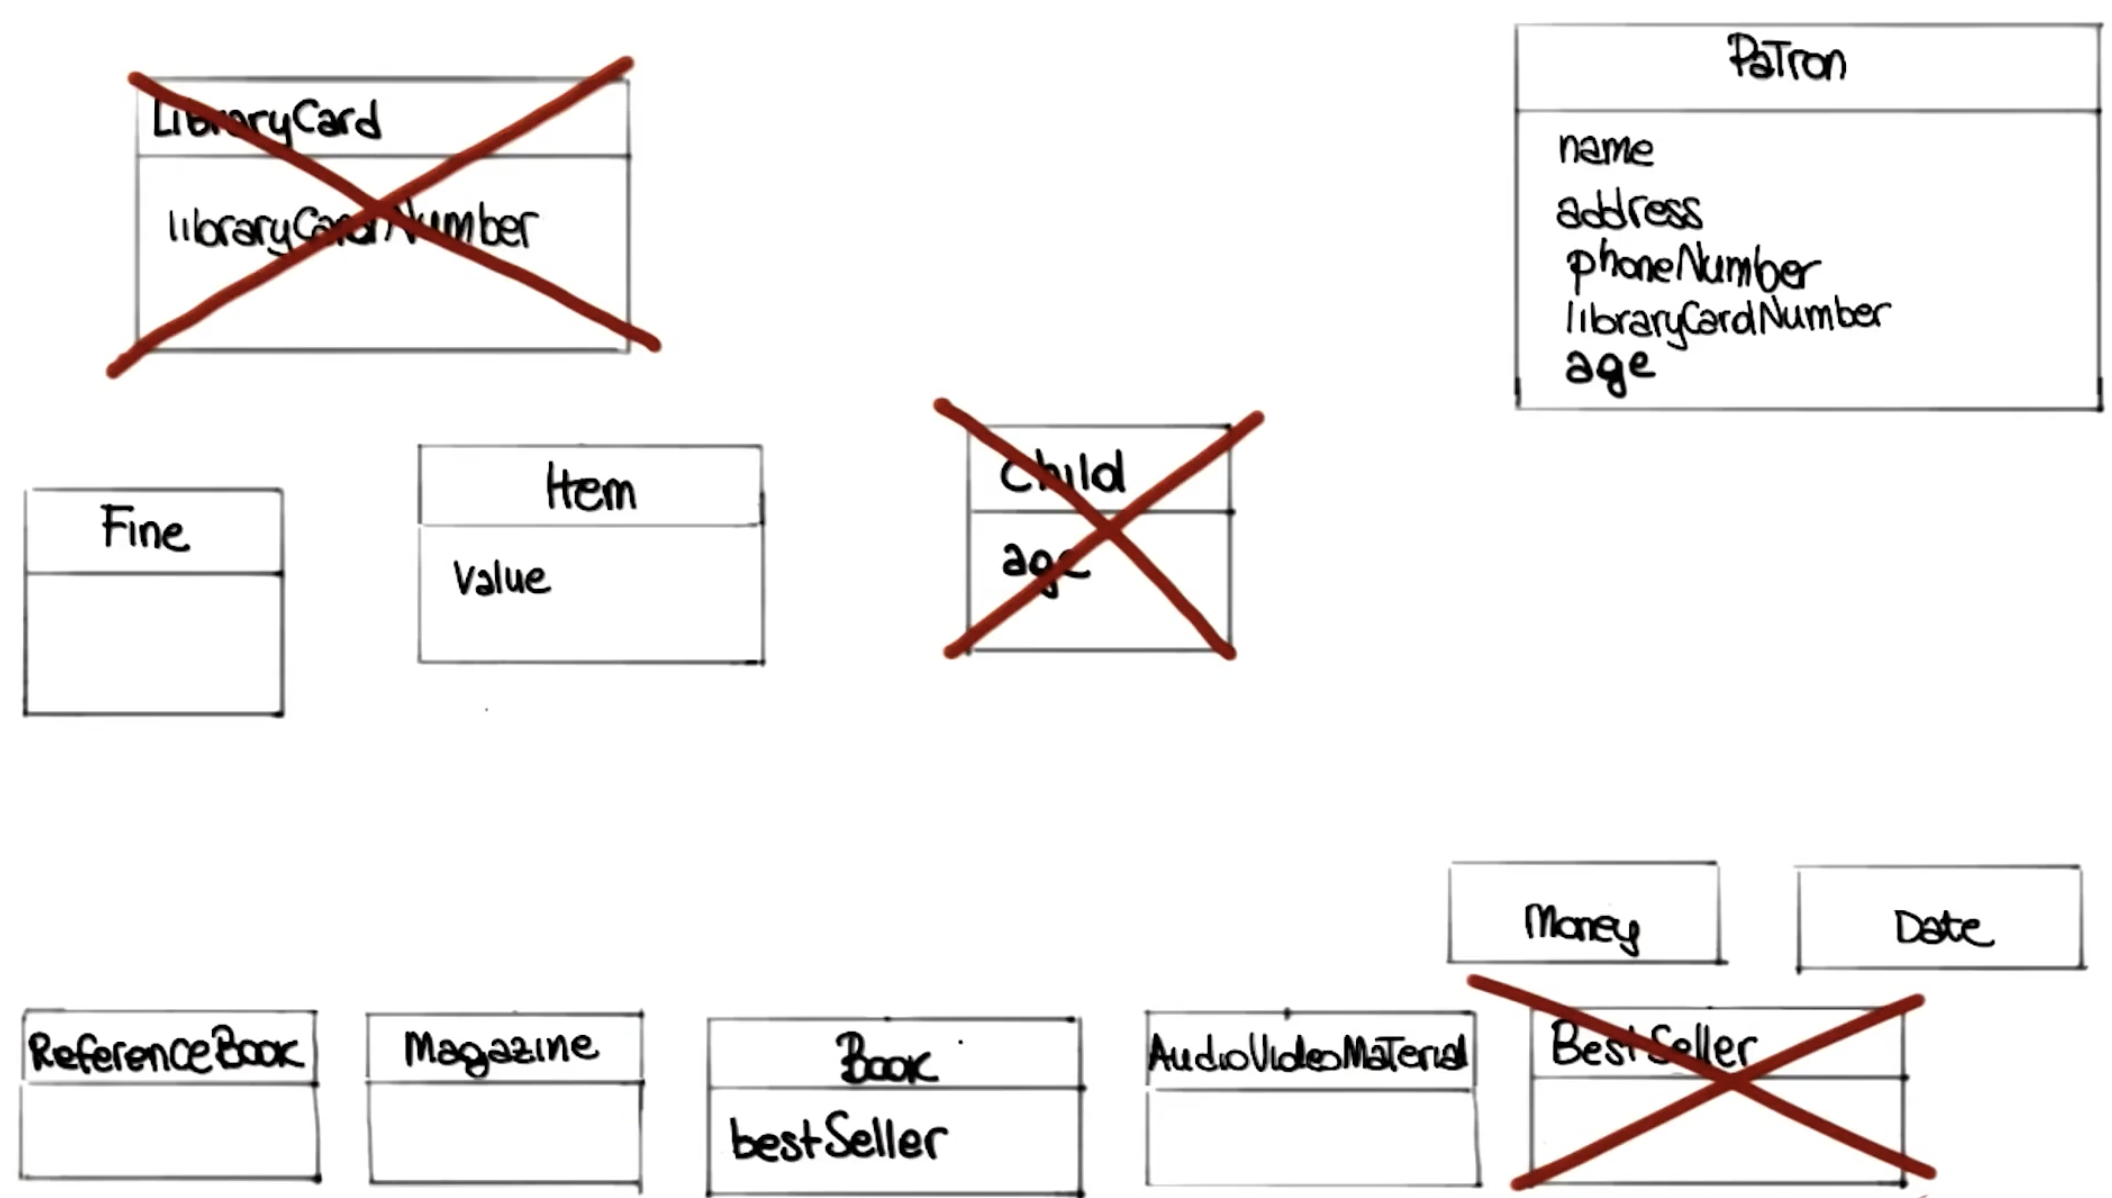 LibraryCard
libraryCardNumber
Patron
name
address
phoneNumber
libraryCardNumber
age
Fine
Item
Value
Child
age
Money
Date
ReferenceBook
Magazine
Book
bestSeller
AudioVideoMaterial
BestSeller